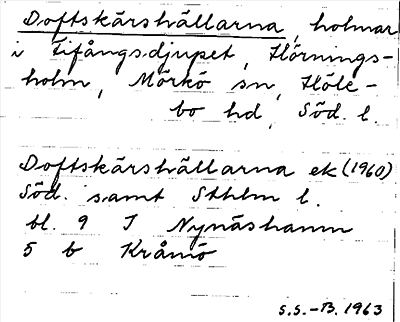 Doftskärshällarna, holmar
i Fifångsdjupet, Hörnings-
holm, Mörkö sn, Höle-
bo hd, Söd. l.
Doftskärshällarna ek (1960)
Söd. samt Sthlm l.
bl. 9 I Nynäshamn
5 b Kråmö
S.S.-B. 1963